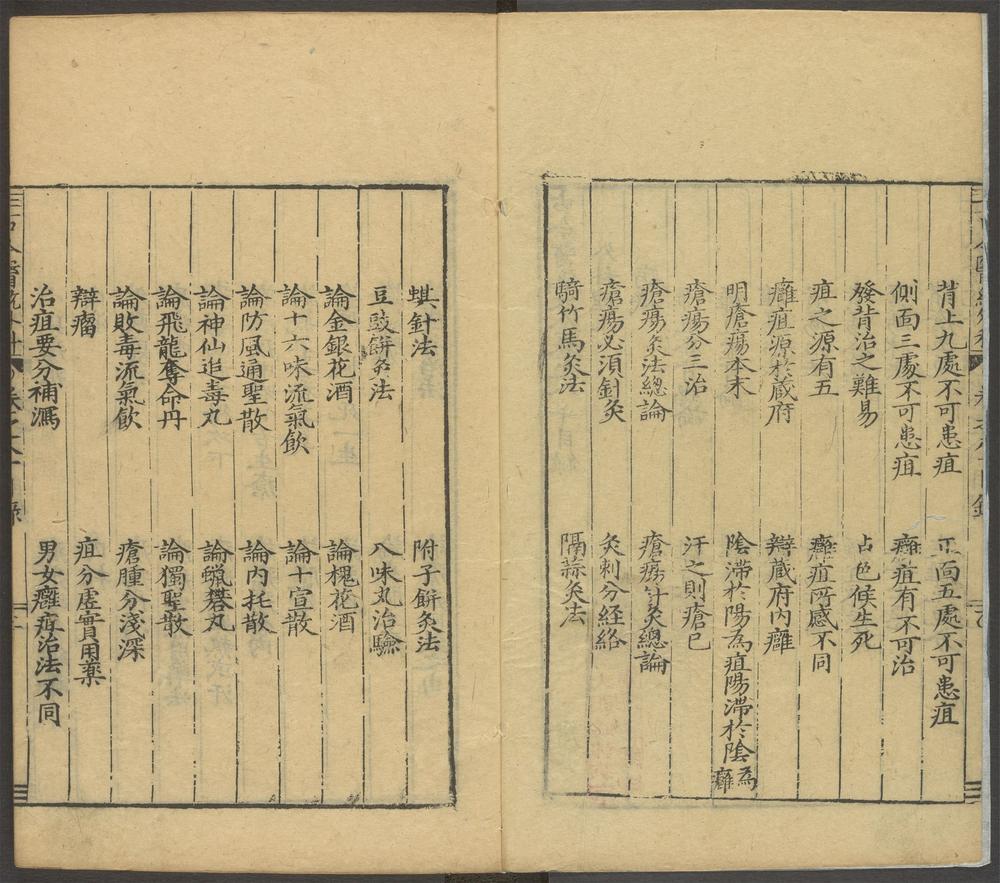 背上九處不可患疽　正面五處不可患疽
側面三處不可患疽　癰疽有不可治
發背治之難易　占色候生死
疽之源有五　癰疽所感不同
癰疽源於蔵府　辯蔵府內癰
明瘡瘍本末　陰滯於陽為疽陽滯於陰為癰
瘡瘍分三治　汗之則瘡已
瘡瘍灸法總論　瘡瘍針灸總論
瘡瘍必須針灸　灸刺分経絡
騎竹馬灸法　隔蒜灸法
蜞針法　附子餅灸法
豆豉餅灸法　八味丸治驗
論金銀花酒　論槐花酒
論十六味流氣飲　論十宣散
論防風通聖散　論內托散
論神仙追毒丸　論蠟礬丸
論飛龍奪命丹　論獨聖散
論敗毒流氣飲　瘡腫分淺深
辯瘤　疽分虛實用藥
治疽要分補瀉　男女癰疽治法不同